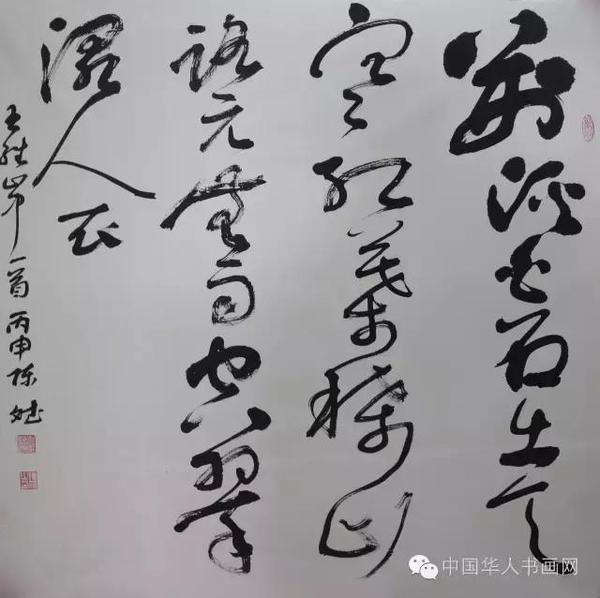 荆溪白石出天
寒紅葉稀山
路元無雨空翠
濕人衣
王維山中一首 丙申 陈
中国华人书画网